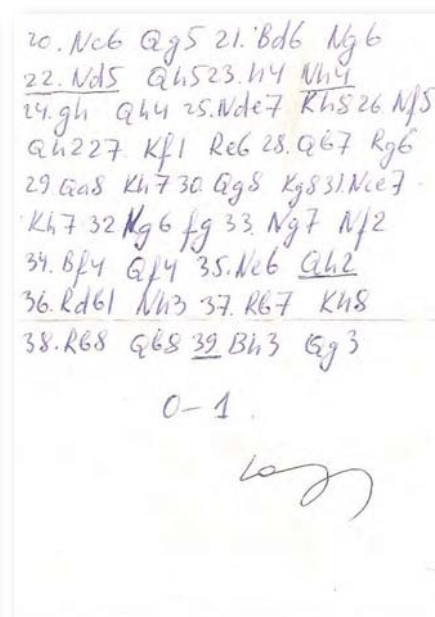 20. Nc6 Qg5 21. Bd6 Ng6
22. Nd5 Qh5 23. h4 Nh4
24. gh Qh4 25. Nde7 Kh8 26. Nf5
Qh2 27. Kf1 Re6 28. Qb7 Rg6
29. Qa8 Kh7 30. Qg8 Kg8 31. Nce7
Kh7 32 Ng6 fg 33. Ng7 Nf2
34. Bf4 Qf4 35. Ne6 Qh2
36. Rdb1 Nh3 37. Rb7 Kh8
38. Rb8 Qb8 39 Bh3 Qg3
0-1.